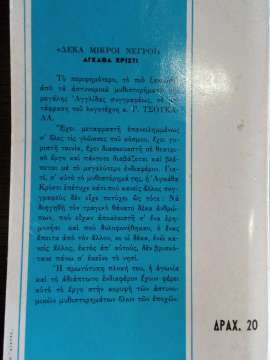 «ΔΕΚΑ ΜΙΚΡΟΙ ΝΕΓΡΟΙ»
ΑΓΚΑΘΑ ΚΡΙΣΤΙ
Τὸ περιφημότερο, τὸ πιὸ
ἀπὸ τὰ ἀστυνομικὰ μυθιστορήματα
μεγάλης Ἀγγλίδας συγγραφέως, σὲ
τάφραση τοῦ λογοτέχνου κ. Γ. ΤΣΟΥΚΑ-
ΛΑ.
Ἔχει μεταφραστῆ ἐπανειλημμένως
σ' ὅλες τὶς γλῶσσες τοῦ κόσμου, ἔχει γυ-
ριστῆ ταινία, ἔχει διασκευαστῆ σὲ θεατρι-
κὸ ἔργο καὶ πάντοτε διαβάζεται καὶ βλέ-
πεται μὲ τὸ μεγαλύτερο ἐνδιαφέρον. Γιατί,
σ' αὐτὸ τὸ μυθιστόρημά της, ἡ Ἀγκάθα
Κρίστι ἐπέτυχε κάτι ποὺ κανεὶς ἄλλος συγ-
γραφεὺς δὲν εἶχε πετύχει ὡς τότε: Νὰ
διηγηθῆ τὸν τραγικὸ θάνατο δέκα ἀνθρώ-
πων, ποὺ εἶχαν ἀποκλειστῆ σ' ἕνα ἐρη-
μονήσι καὶ ποὺ δολοφονήθηκαν, ὁ ἕνας
ἔπειτα ἀπὸ τὸν ἄλλον, κι οἱ δέκα, ἐνῶ κα-
νεὶς ἄλλος, ἐκτὸς ἀπ' αὐτούς, δὲν βρισκό-
ταν πάνω σ' ἐκεῖνο τὸ νησί.
Ἡ πρωτότυπη πλοκή του, ἡ ἀγωνία
καὶ τὸ ἀδιάπτωτο ἐνδιαφέρον ἔχουν φέρει
αὐτὸ τὸ ἔργο στὴν κορυφὴ τῶν ἀστυνο-
μικῶν μυθιστορημάτων ὅλων τῶν ἐποχῶν.
ΔΡΑΧ. 20